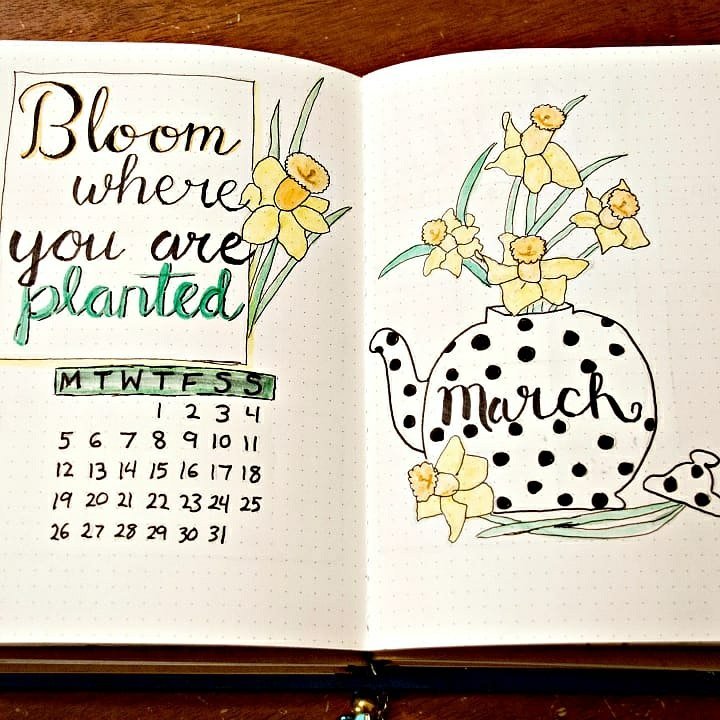 Bloom
where
you are
planted
M T W T F S S
1 2 3 4
5 6 7 8 9 10 11
12 13 14 15 16 17 18
19 20 21 22 23 24 25
26 27 28 29 30 31
March